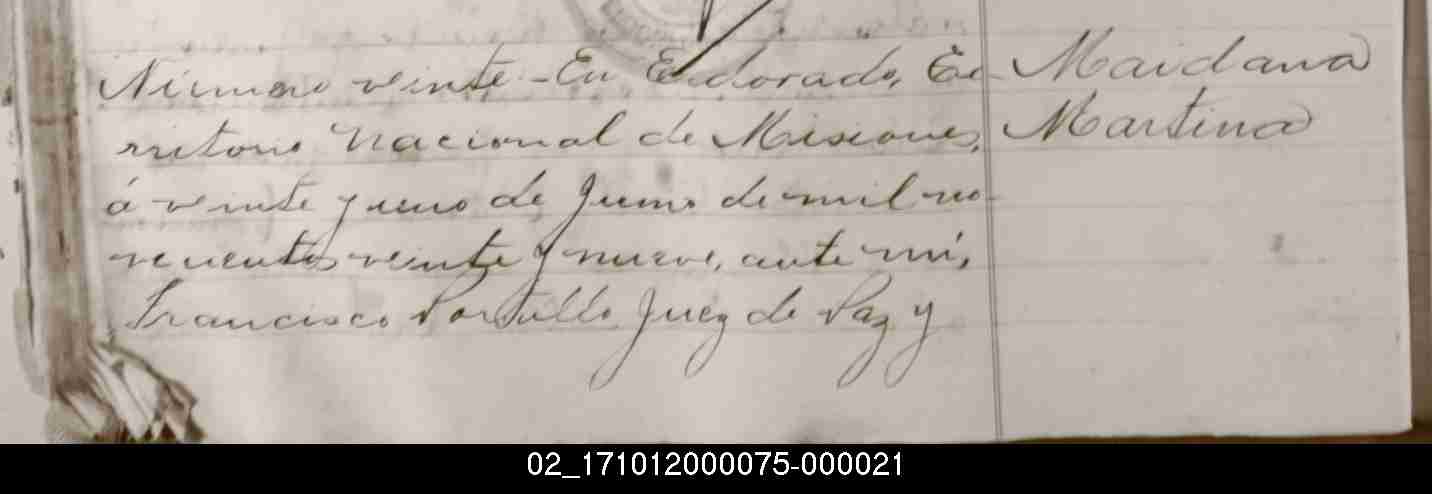 Número veinte - En Eldorado, Te-
rritorio Nacional de Misiones,
á veinte y uno de Junio de mil no-
vecientos veinte y nueve, ante mí,
Francisco Portillo Juez de Paz y
Maidana
Martina
02_171012000075-000021